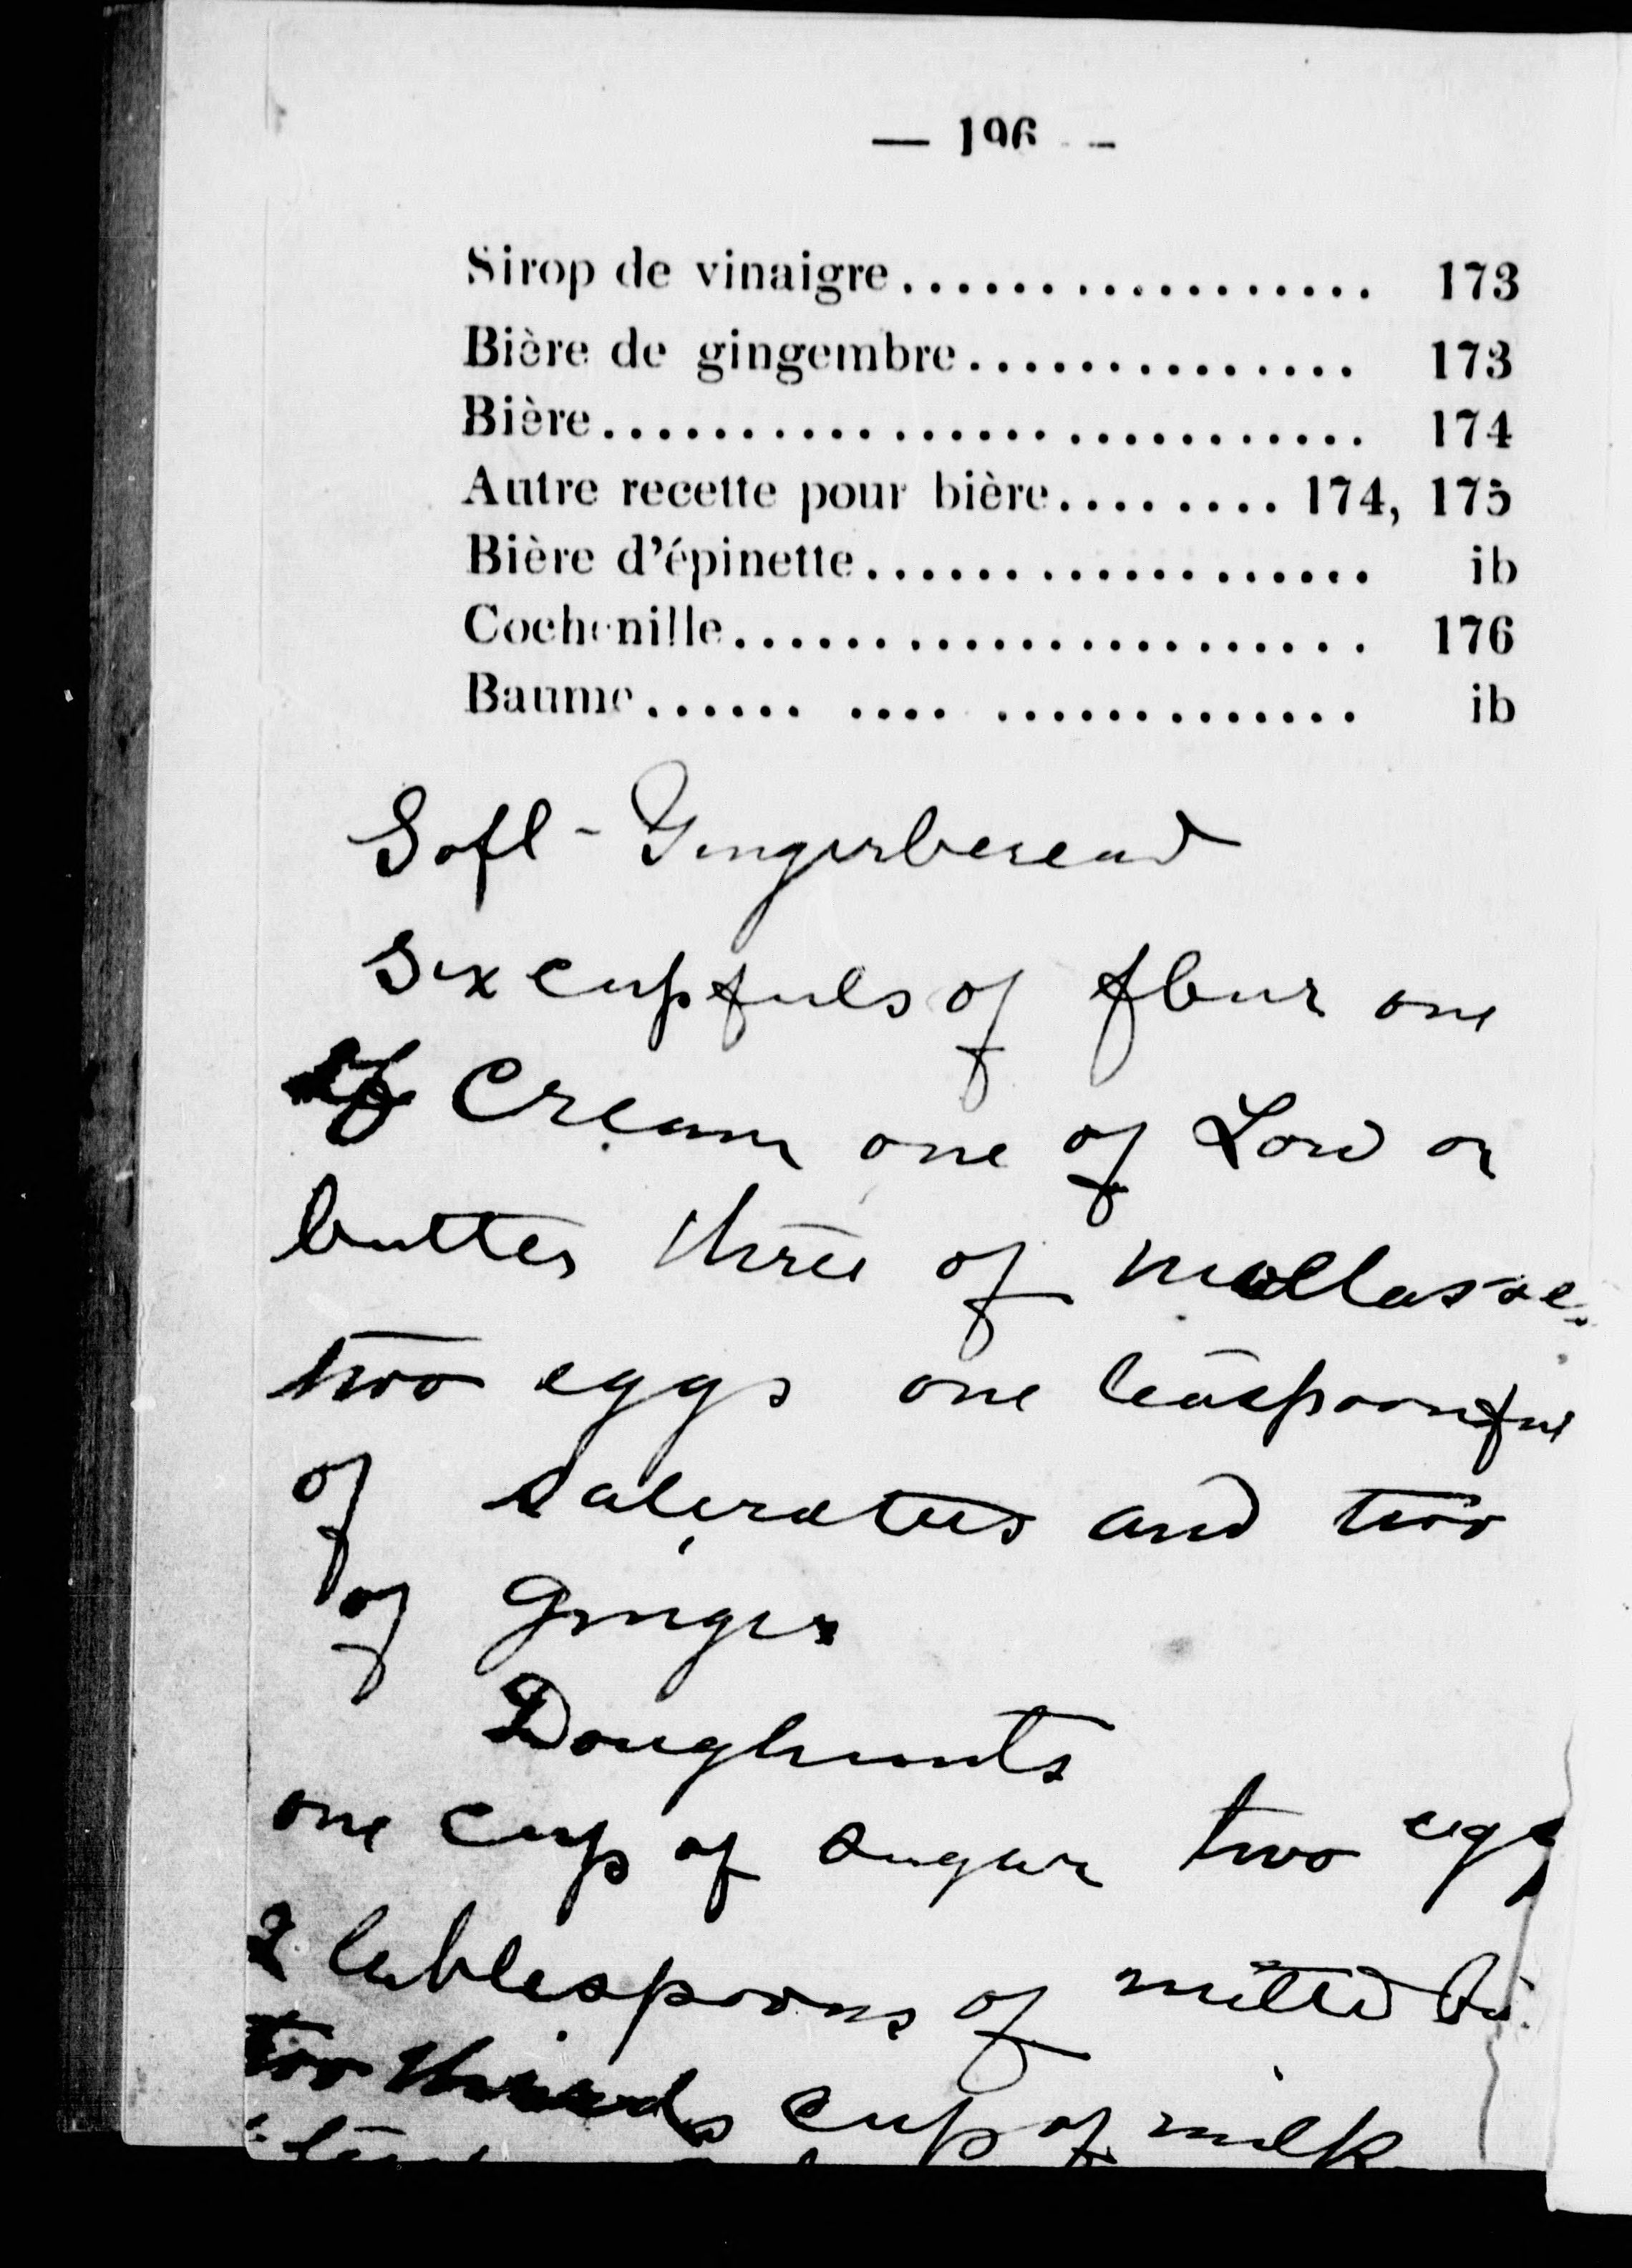 — 196 —
Sirop de vinaigre.................. 173
Bière de gingembre............... 173
Bière............................ 174
Autre recette pour bière........ 174, 175
Bière d'épinette................... ib
Cochenille........................ 176
Baume....................... ib
Soft-Gingerberead
Six cupfuls of flour one
of Cream one of Lard or
butter three of mollasses
two eggs one teaspoonful
of saleratus and two
of Ginger
Doughnuts
one cup of sugar two eggs
2 tablespoons of melted
two thirds cup of milk